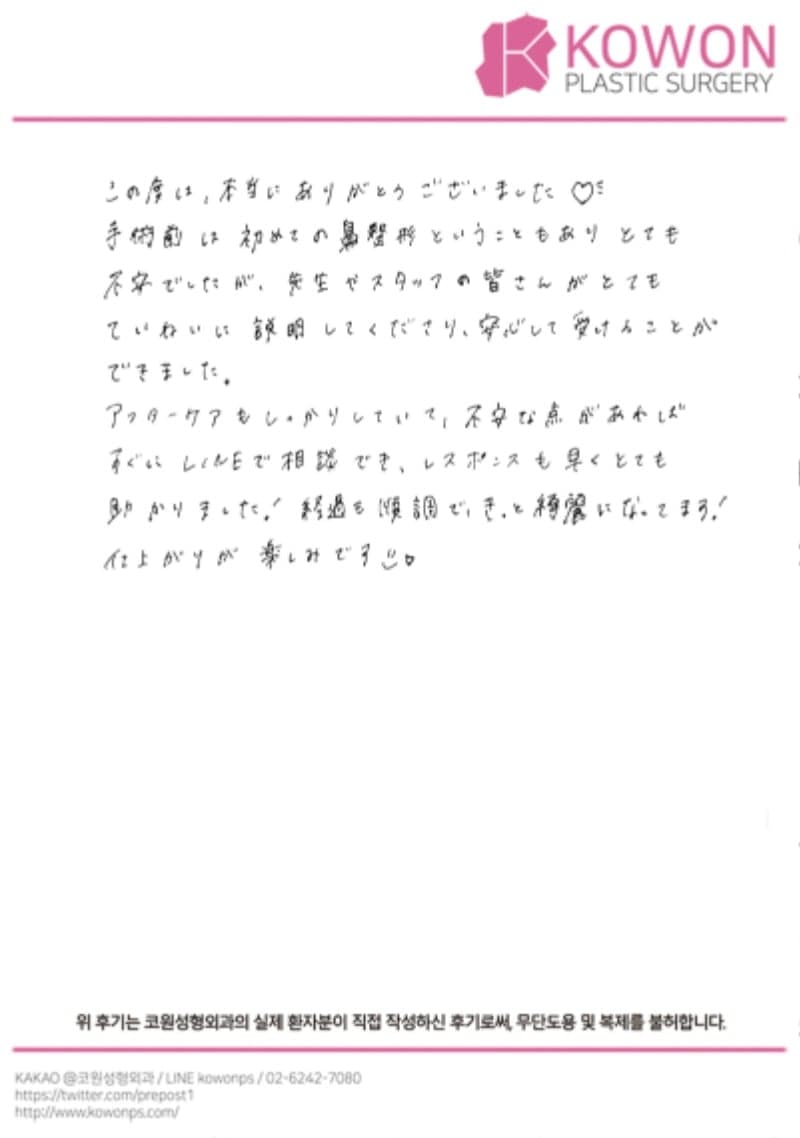 KOWON
PLASTIC SURGERY
この度は、本当にありがとうございました♡
手術前は初めての鼻整形ということもありとても
不安でしたが、先生やスタッフの皆さんがとても
ていねいに説明してくださり、安心して受けることが
できました。
アフターケアもしっかりしていて、不安な点があれば
すぐにLINEで相談でき、レスポンスも早くとても
助かりました！経過も順調で、きっと綺麗になってます！
仕上がりが楽しみです♡
위 후기는 코원성형외과의 실제 환자분이 직접 작성하신 후기로써, 무단도용 및 복제를 불허합니다.
KAKAO @코원성형외과 / LINE kowonps / 02-6242-7080
https://twitter.com/prepost1
http://www.kowonps.com/